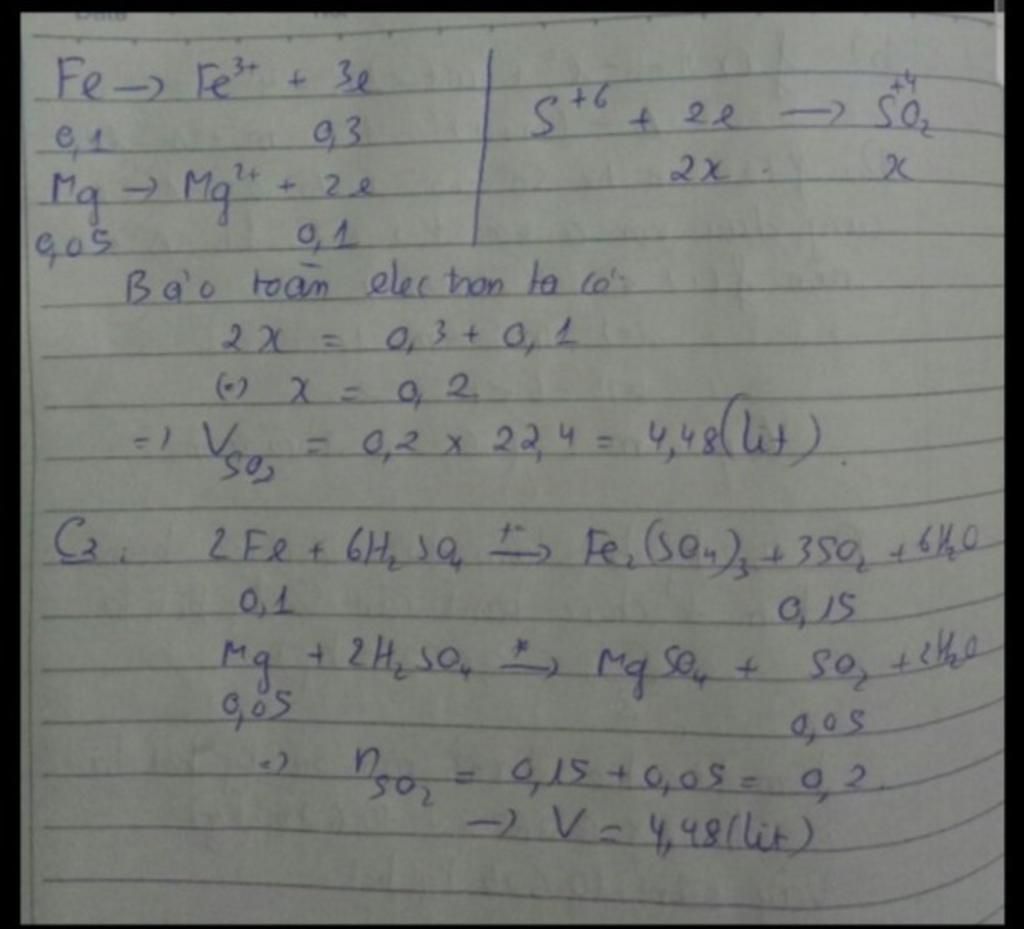 Fe → Fe³⁺ + 3e
0,1 0,3
Mg → Mg²⁺ + 2e
0,05 0,1
S⁺⁶ + 2e → S⁺⁴O₂
2x x
Bảo toàn electron ta có:
2x = 0,3 + 0,1
(=) x = 0,2
=) V_SO₂ = 0,2 x 22,4 = 4,48 (lit)
C2. 2Fe + 6H₂SO₄ → Fe₂(SO₄)₃ + 3SO₂ + 6H₂O
0,1 0,15
Mg + 2H₂SO₄ → MgSO₄ + SO₂ + 2H₂O
0,05 0,05
=) n_SO₂ = 0,15 + 0,05 = 0,2
→ V = 4,48 (lit)